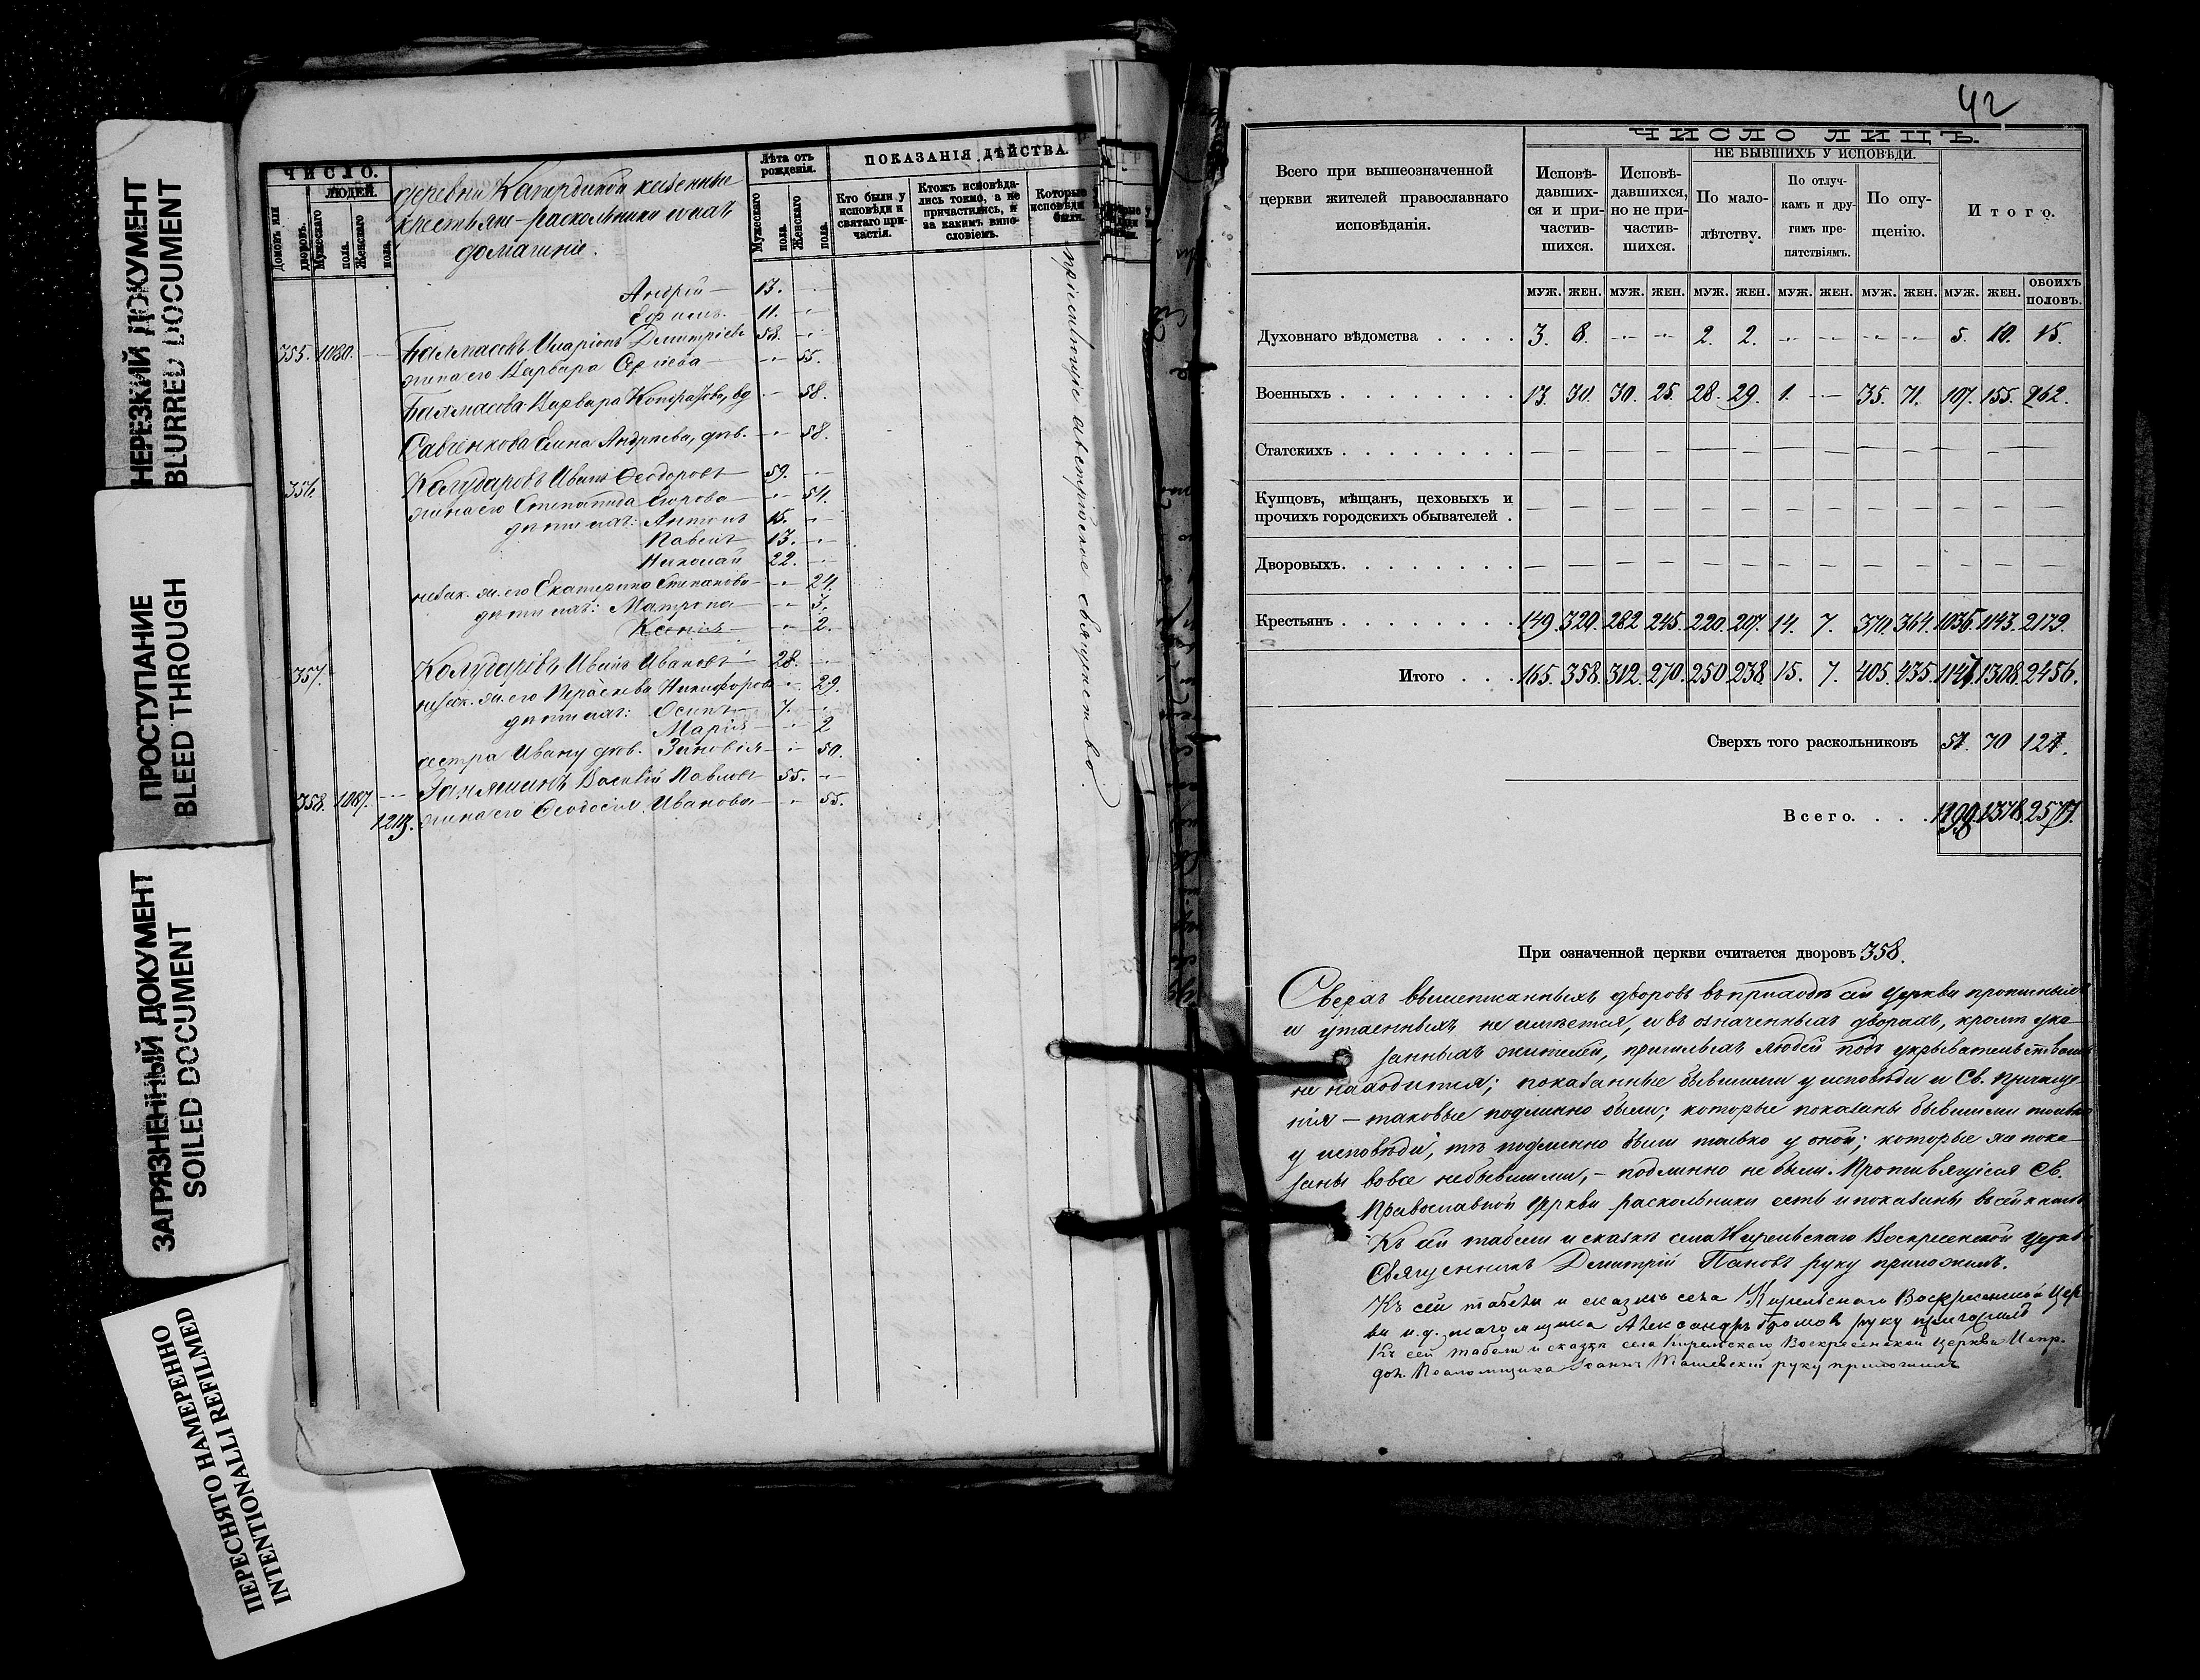 НЕРЕЗКИЙ ДОКУМЕНТ
BLURRED DOCUMENT
ПРОСТУПАНИЕ
BLEED THROUGH
ЗАГРЯЗНЕННЫЙ ДОКУМЕНТ
SOILED DOCUMENT
ПЕРЕСНЯТО НАМЕРЕННО
INTENTIONALLI REFILMED
ЧИСЛО.
ЛЮДЕЙ.
Домовъ или дворовъ.
Мужескаго пола.
Женскаго пола.
деревни казенные
крестьяне-раскольники и ихъ
домашніе.
Лѣта отъ рожденія.
Мужескаго пола.
Женскаго пола.
ПОКАЗАНІЯ ДѢЙСТВА.
Кто были у исповѣди и святаго причастія.
Ктожъ исповѣдались токмо, а не причастились, и за какимъ винословіемъ.
Которые исповѣди были.
Андрей — 13.
Ефимъ. 11.
355. 1080. Балмасовъ Иларіонъ Димитріевъ 58.
жена его Варвара Сергіева — 55.
Балмасова Варвара вд 58.
Савенкова Елена Андреева, дѣв. 58.
356. Калугаровъ Иванъ Ѳеодоровъ 59.
жена его Степанида 54.
дѣти ихъ: Антонъ 15.
Павелъ 13.
Николай 22.
незак. ж. его Екатерина Степанова 24.
дѣти ихъ: Матрона 3.
Ксенія 2.
357. Калугаровъ Иванъ Ивановъ 28.
незак. ж. его Параскева Никифорова 29.
дѣти ихъ: Осипъ 7.
Марія 2
сестра Ивану дѣв. Зиновія 50.
358. 1087. Василій Павловъ 55.
1213. жена его Ѳеодосія Иванова 55.
пріемлющіе австрійское священство.
42
ЧИСЛО ЛИЦЪ.
Всего при вышеозначенной церкви жителей православнаго исповѣданія.
Исповѣдавшихся и причастившихся.
Исповѣдавшихся, но не причастившихся.
НЕ БЫВШИХЪ У ИСПОВѢДИ.
По малолѣтству.
По отлучкамъ и другимъ препятствіямъ.
По опущенію.
Итого.
МУЖ. ЖЕН. МУЖ. ЖЕН. МУЖ. ЖЕН. МУЖ. ЖЕН. МУЖ. ЖЕН. МУЖ. ЖЕН. ОБОИХЪ ПОЛОВЪ.
Духовнаго вѣдомства . . . . 3. 8. 2. 2. 5. 10. 15.
Военныхъ . . . . . . . . . 13. 30. 30. 25. 28. 29. 1. — 35. 71. 107. 155. 262.
Статскихъ . . . . . . . . . — — — — — — — — — — — — —
Купцовъ, мѣщанъ, цеховыхъ и
прочихъ городскихъ обывателей . — — — — — — — — — — — — —
Дворовыхъ. . . . . . . . . — — — — — — — — — — — — —
Крестьянъ . . . . . . . . . 149. 320. 282. 245. 220. 207. 14. 7. 370. 364. 1036. 1143. 2179.
Итого . . . 165. 358. 312. 270. 250. 238. 15. 7. 405. 435. 1308. 2456.
Сверхъ того раскольниковъ 70
Всего. . . .
При означенной церкви считается дворовъ 358.
Сверхъ вышеписанныхъ дворовъ въ приходѣ сей церкви
и утаенныхъ не имѣется, и въ означенныхъ дворахъ, кромѣ ука-
занныхъ жителей, пришлыхъ людей подъ укрывательствомъ
не находится; показанные бывшими у исповѣди и Св. Причаще-
нія — таковые подлинно были; которые показаны бывшими только
у исповѣди, тѣ подлинно были только у оной; которые же пока-
заны вовсе небывшими, — подлинно не были. Противящіеся Св.
Православной Церкви раскольники есть и показаны въ сей книгѣ
Къ сей табели и сказкѣ села Кирельскаго Воскресенской церкви
Священникъ Димитрій Пановъ руку приложилъ.
Къ сей табели и сказкѣ села Кирельскаго Воскресенской Цер-
кви и. д. псаломщика Александръ руку приложилъ
Къ сей табели и сказкѣ села Кирельскаго Воскресенской церкви Испр.
дол. Псаломщика Іоаннъ руку приложилъ